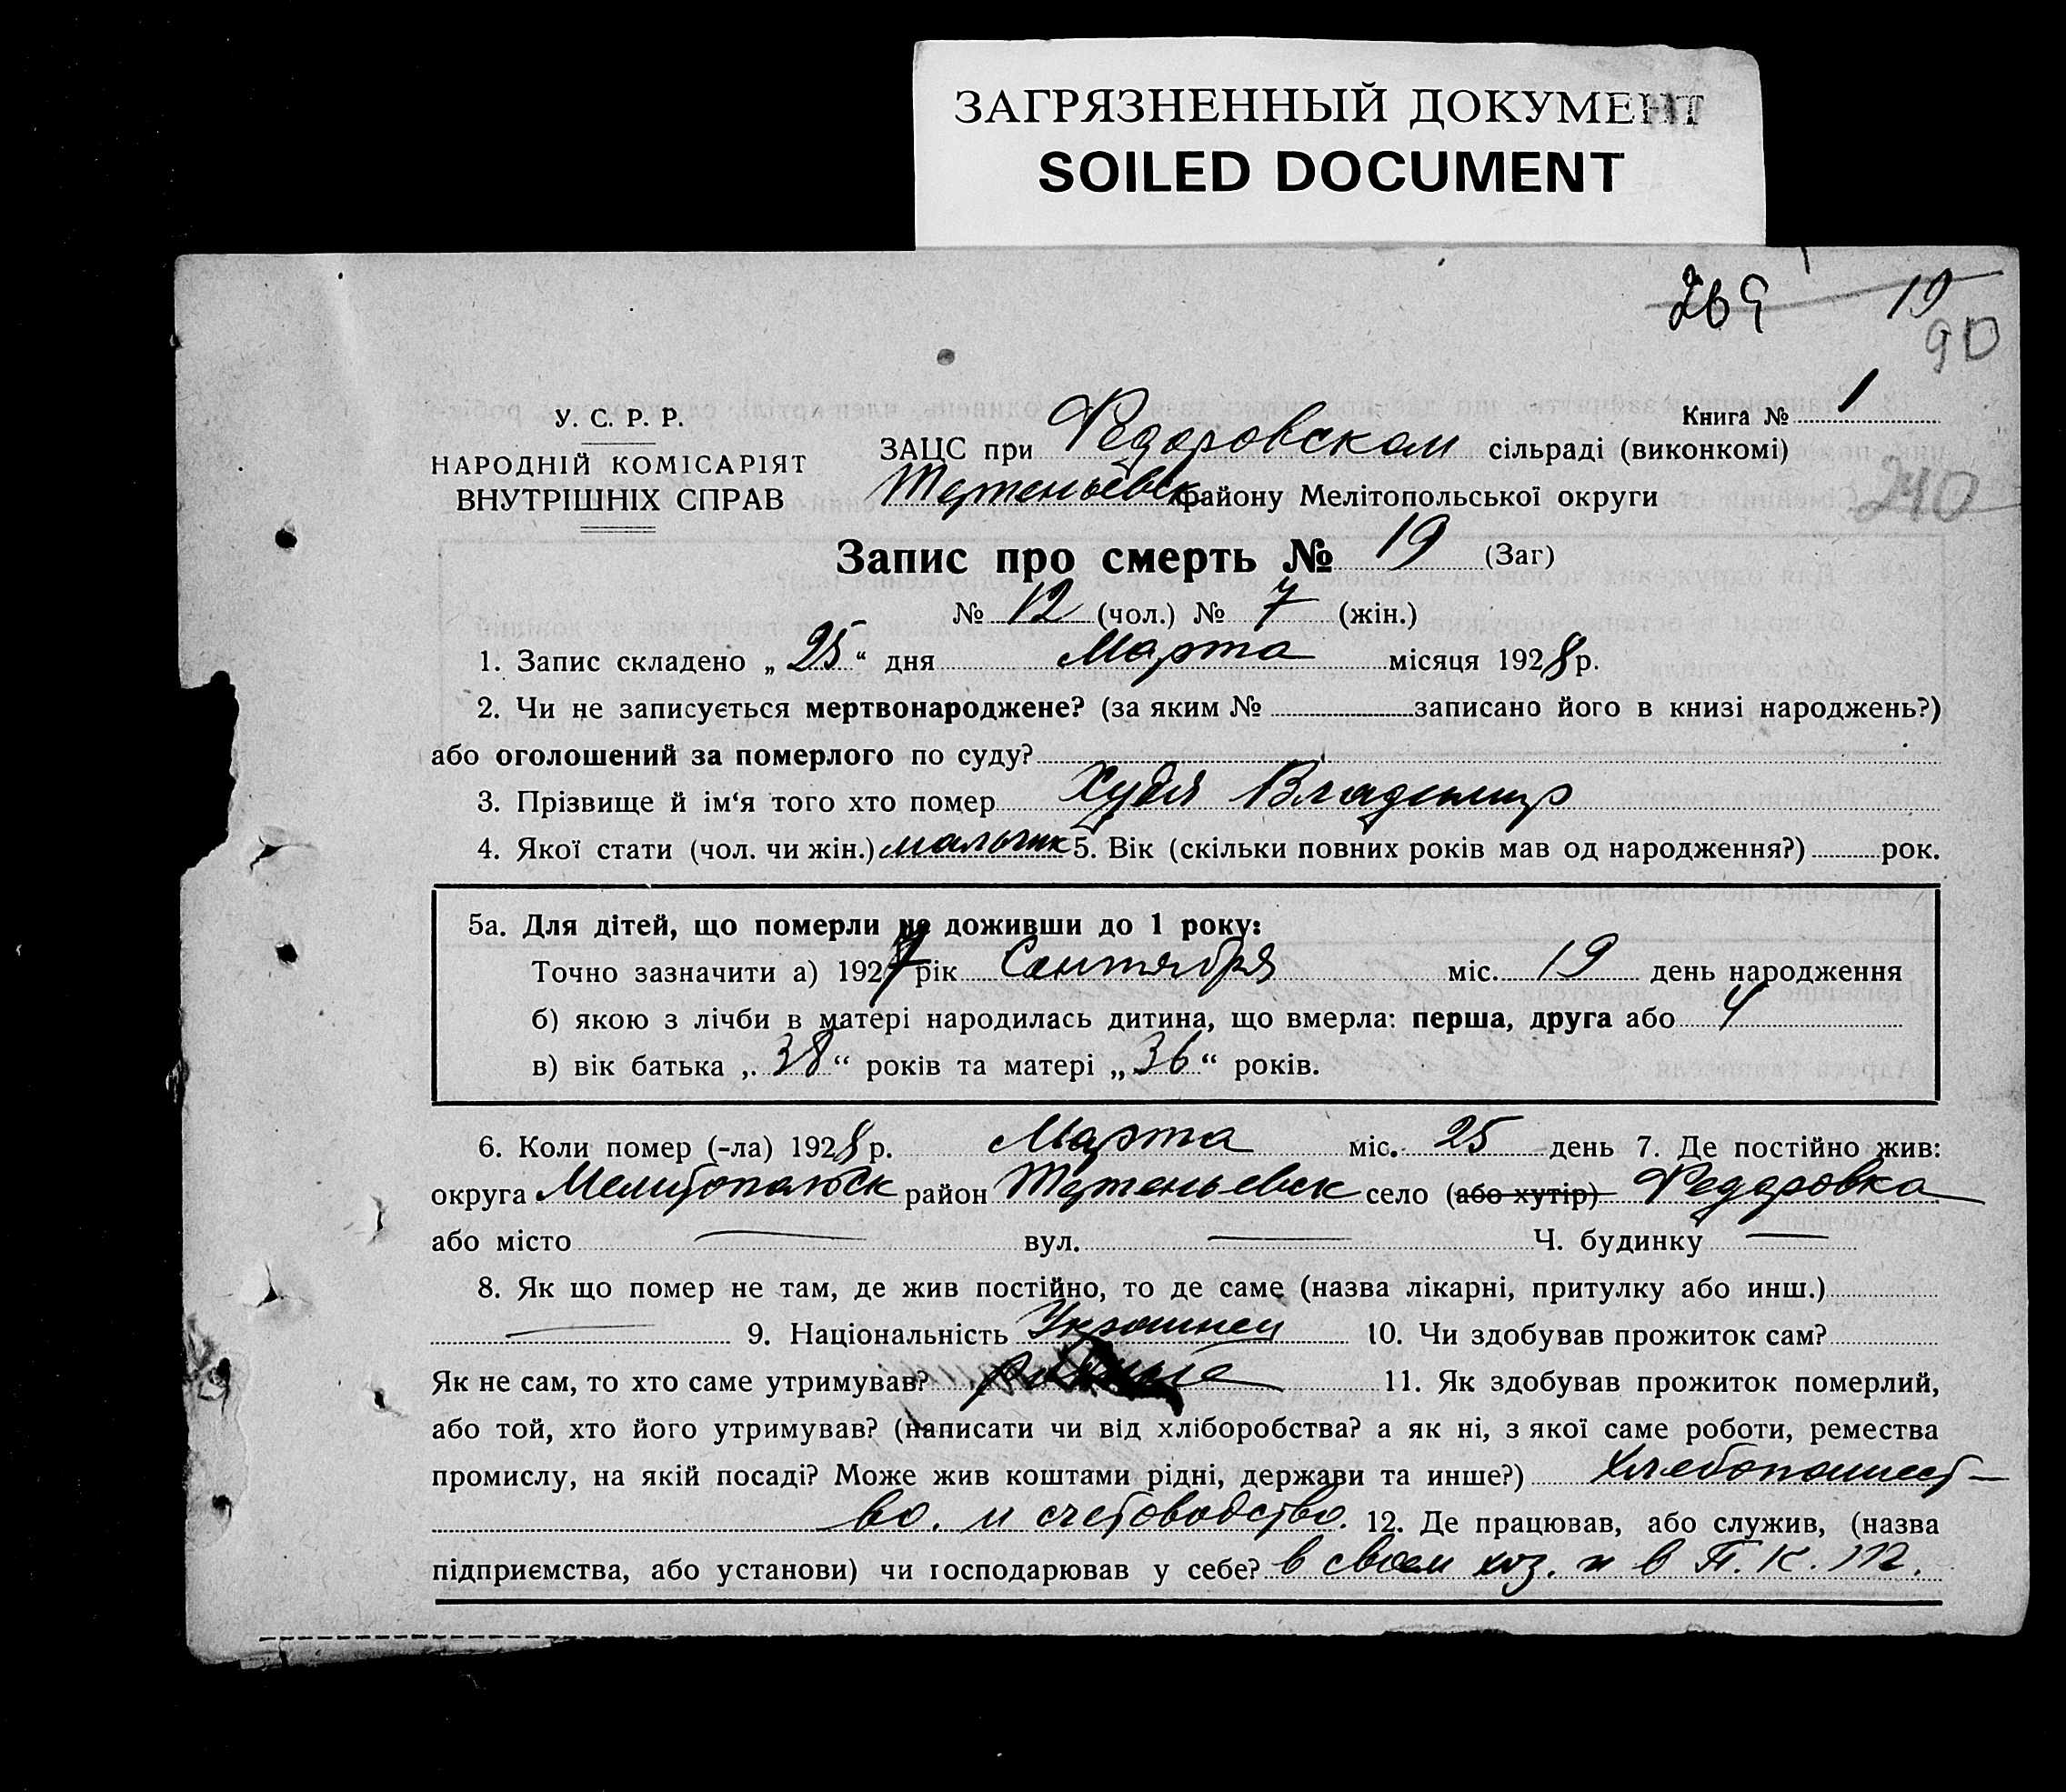 ЗАГРЯЗНЕННЫЙ ДОКУМЕНТ
SOILED DOCUMENT
269 19
90
Книга № 1
У. С. Р. Р.
НАРОДНІЙ КОМІСАРІЯТ
ВНУТРІШНІХ СПРАВ
ЗАЦС при Федоровском сільраді (виконкомі)
району Мелітопольської округи
240
Запис про смерть № 19 (Заг)
№ 12 (чол.) № 7 (жін.)
1. Запис складено „ 25 “ дня Марта місяця 1928 р.
2. Чи не записується мертвонароджене? (за яким № записано його в книзі народжень?)
або оголошений за померлого по суду?
3. Прізвище й ім‘я того хто помер Худя Владимир
4. Якої стати (чол. чи жін.) мальчик 5. Вік (скільки повних років мав од народження?) рок.
5а. Для дітей, що померли не доживши до 1 року:
Точно зазначити а) 1927 рік Сентября міс. 19 день народження
б) якою з лічби в матері народилась дитина, що вмерла: перша, друга або 4
в) вік батька „ 38 “ років та матері „ 36 “ років.
6. Коли помер (-ла) 1928 р. Марта міс. 25 день 7. Де постійно жив:
округа Мелитопольск район село (або хутір) Федоровка
або місто — вул. — Ч. будинку —
8. Як що помер не там, де жив постійно, то де саме (назва лікарні, притулку або инш.)
— 9. Національність Украинец 10. Чи здобував прожиток сам?
Як не сам, то хто саме утримував? 11. Як здобував прожиток померлий,
або той, хто його утримував? (написати чи від хліборобства? а як ні, з якої саме роботи, ремества
промислу, на якій посаді? Може жив коштами рідні, держави та инше?) Хлебопашест-
во. и счетоводство. 12. Де працював, або служив, (назва
підприємства, або установи) чи господарював у себе? в своем хоз. и в П. К. Т.